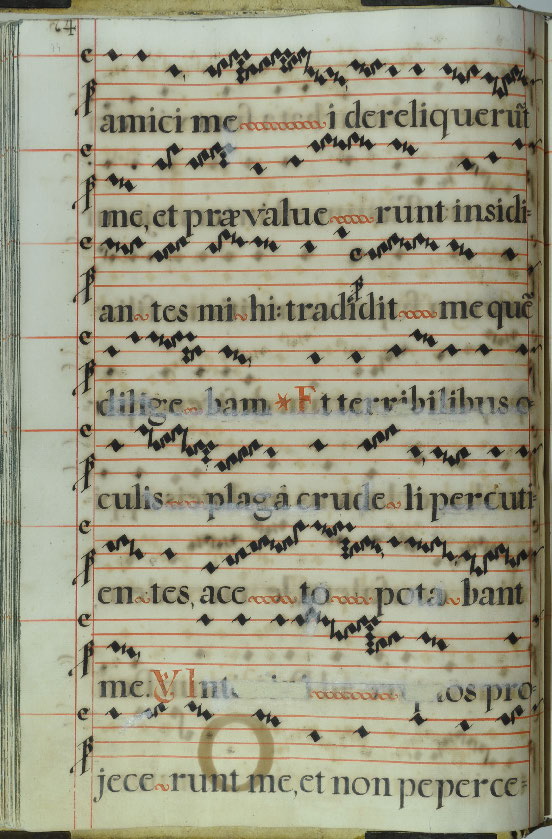 24
amici me i dereliquerũt
me, et prævalue runt insidi-
an tes mi hi: tradidit me quẽ
dilige bam * Et terribilibus o-
culis plaga crude li percuti-
en tes, ace to pota bant
me. V. Int os pro-
jece runt me, et non peperce-